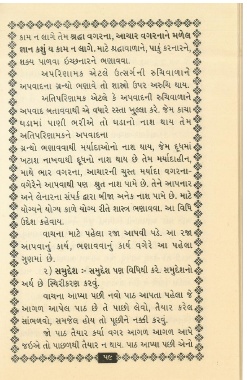 કામ ન લાગે તેમ શ્રદ્ધા વગરના, આચાર વગરનાને મળેલ
જ્ઞાન કશુંય કામ ન લાગે. માટે શ્રદ્ધાવાળાને, પાકું કરનારને,
શક્ય પાળવા ઇચ્છનારને ભણાવવા.
અપરિણામક એટલે ઉત્સર્ગની રુચિવાળાને
અપવાદના ગ્રન્થો ભણાવે તો શાસ્ત્રો ઉપર અરુચિ થાય.
અતિપરિણામક એટલે કે અપવાદની રુચિવાળાને
અપવાદ બતાવવાથી એ વધારે રસ્તા ખુલ્લા કરે. જેમ કાચા
ઘડામાં પાણી ભરીએ તો ઘડાનો નાશ થાય તેમ
અતિપરિણામકને અપવાદના
ગ્રન્થો ભણાવવાથી મર્યાદાઓનો નાશ થાય, જેમ દૂધમાં
ખટાશ નાખવાથી દૂધનો નાશ થાય છે તેમ મર્યાદાહીન,
માથે ભાર વગરના, આચારની ચુસ્ત મર્યાદા વગરના-
વગેરેને આપવાથી પણ શ્રુત નાશ પામે છે. તેને આપનાર
અને લેનારના સંપર્ક દ્વારા બીજા અનેક નાશ પામે છે. માટે
યોગ્યને યોગ્ય કાળે યોગ્ય રીતે શાસ્ત્ર ભણાવવા. આ વિધિ
ઉદેશ કહેવાય.
વાચના માટે પહેલા રજા આપવી પડે. આ રજા
આપવાનું કાર્ય, ભણાવવાનું કાર્ય વગેરે આ પહેલા
ગુણમાં છે.
૨) સમુદેશ :- સમુદેશ પણ વિધિથી કરે. સમુદેશનો
અર્થ છે સ્થિરીકરણ કરવું.
વાચના આપ્યા પછી નવો પાઠ આપતા પહેલા જે
આગળ આપેલ પાઠ છે તે પાછો લેવો, તૈયાર કરેલ
સાંભળવો, સમજેલ હોય તો પૂછીને નક્કી કરવું.
જો પાઠ તૈયાર કર્યા વગર આગળ આગળ આપે
જઇએ તો પાછળથી તૈયાર ન થાય. પાઠ આપ્યા પછી એનો